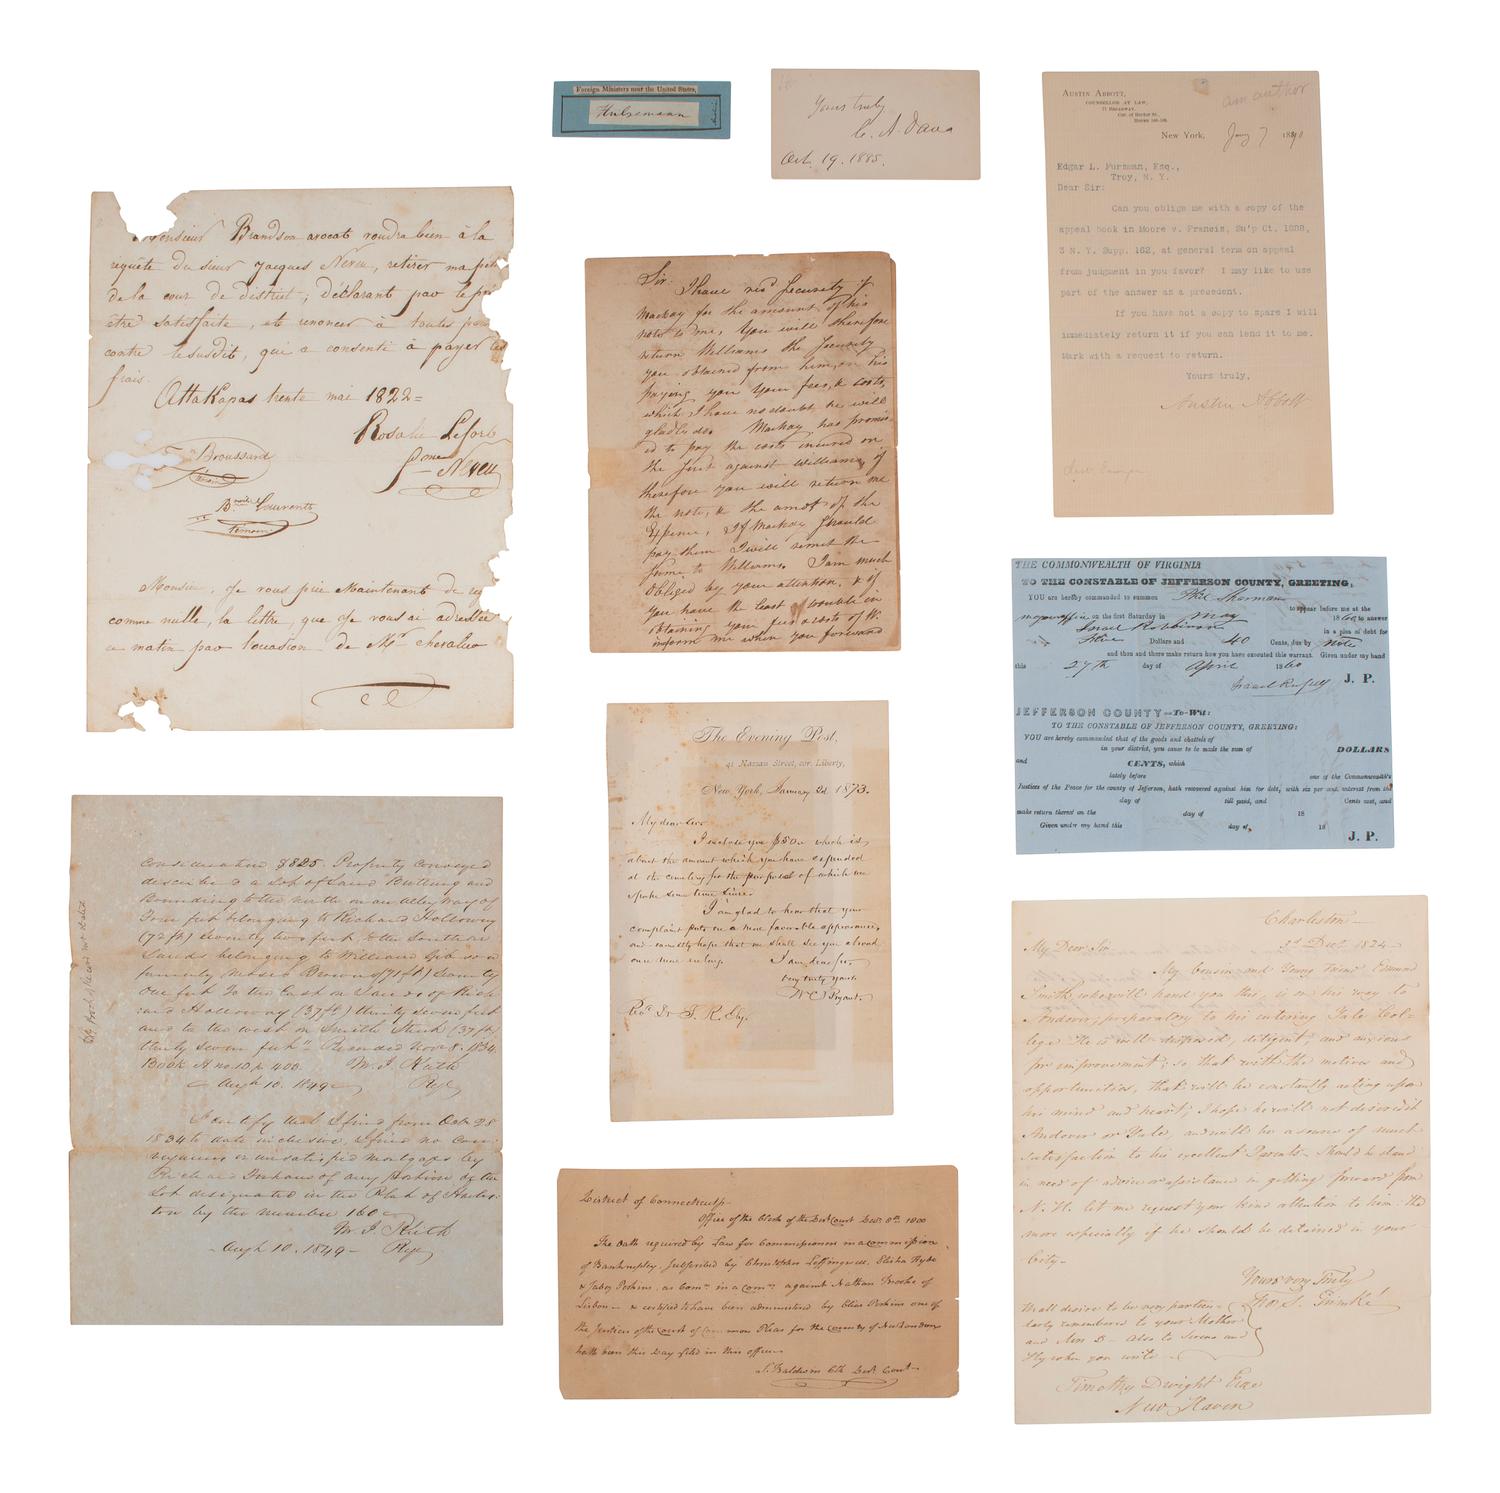 Foreign Ministers near the United States,
Hulsemann
Austria
Yours truly
C. A. Dana
Oct. 19. 1885.
an author
AUSTIN ABBOTT,
COUNSELLOR AT LAW,
71 BROADWAY,
New York, Jany 7 1890
Edgar L. Fursman, Esq.,
Troy, N. Y.
Dear Sir:
Can you oblige me with a copy of the
appeal book in Moore v. Francis, Su'p Ct. 1888,
3 N. Y. Supp. 162, at general term on appeal
from judgment in you favor? I may like to use
part of the answer as a precedent.
If you have not a copy to spare I will
immediately return it if you can lend it to me.
Mark with a request to return.
Yours truly,
Austin Abbott
Monsieur Brandson avocat voudra bien à la
requête du sieur Jacques Neveu, retirer ma
de la cour de district; Déclarant par le
être satisfaite, et renoncer à toutes
contre le susdit, qui a consenti à payer les
frais.
Attakapas trente mai 1822=
Rosalie Lesort
Broussard
Neveu
Laurents
témoin
Monsieur, Je vous prie Maintenant de
comme nulle, la lettre, que Je vous ai adressée
ce matin par l'ocasion de Mr chevalier
Sir. I have recd Security of
Mackay for the amount of his
note to me, You will therefore
return Williams the Security
you obtained from him, on his
paying you your fees, & costs,
which I have no doubt he will
gladly do. Mackay has promis-
ed to pay the costs incured on
the Suit against Williams, if
therefore you will return me
the note, & the amot of the
Expence, If Mackay should
pay them I will remit the
same to Williams. I am much
obliged by your attention, & if
you have the least trouble in
obtaining your fees & costs of W.
inform me when you forward
THE COMMONWEALTH OF VIRGINIA
TO THE CONSTABLE OF JEFFERSON COUNTY, GREETING,
YOU are hereby commanded to summon Phil Sherman
to appear before me at the
my office on the first Saturday in May 1860 to answer
Israel Robinson in a plea of debt for
five Dollars and 40 Cents, due by Note
and then and there make return how you have executed this warrant. Given under my hand
this 27th day of April 1860
J. P.
JEFFERSON COUNTY—To-Wit:
TO THE CONSTABLE OF JEFFERSON COUNTY, GREETING:
YOU are hereby commanded that of the goods and chattels of
in your district, you cause to be made the sum of DOLLARS
and CENTS, which
lately before one of the Commonwealth's
Justices of the Peace for the county of Jefferson, hath recovered against him for debt, with six per cent. interest from the
day of till paid, and Cents cost, and
make return thereof on the day of 18
Given under my hand this day of, 18 J. P.
The Evening Post,
41 Nassau Street, cor. Liberty,
New York, January 2d 1873.
My dear sir.
I enclose you $50.. which is
about the amount which you have expended
at the cemetery for the purposes of which we
spoke some time since.
I am glad to hear that your
complaint puts on a more favorable appearance,
and earnestly hope that we shall see you abroad
once more
I am, dear sir,
very truly yours
W C Bryant.
Consideration $825. Property conveyed
described a Lot of Land Butting and
Bounding to the North on an alley way of
Four feet belonging to Richard Holloway
(72 ft) Seventy two feet, to the South on
Lands belonging to William Gibson
formerly Moses Brown (71 ft) Seventy
One feet To the East on Lands of Rich-
ard Holloway (37 ft) thirty seven feet
and to the West on Smith Street (37 ft)
thirty seven feet" Recorded Nov 8. 1834
Book A no 10 p 400.
Augt 10. 1849
I certify that I find from Oct 28
1834 to date inclusive, I find no Con-
veyances or unsatisfied mortgages by
Richard of any portion of the
Lot designated in the Plat of
ton by the number 160
Augt 10. 1849
District of Connecticut ss
Office of the Clerk of the Dist Court Decr 8th 1800
The Oath required by Law for Commissioners in a commission
of Bankruptcy, subscribed by Christopher Leffingwell, Elisha Hyde
& Jabez Perkins, as Comrs in a Comn against Nathan of
Lisbon — & certified to have been administered by Elias Perkins one of
the Justices of the Court of Common Pleas for the County of New London
hath been this Day filed in this office
S. Baldwin Clk Dist Court
Charleston
3d Decr 1824
My Dear Sir
My Cousin and Young Friend Edmund
Smith, who will hand you this, is on his way to
Andover, preparatory to his entering Yale Col-
lege. He is well disposed, diligent, and anxious
for improvement; so that with the motives and
opportunities, that will be constantly acting upon
his mind and heart, I hope he will not discredit
Andover or Yale, and will be a source of much
satisfaction to his excellent Parents. Should he stand
in need of advice or assistance in getting forward from
N. H. let me request your kind attention to him: the
more especially if he should be detained in your
City.
Yours very Truly
Thos. S. Grimké
We all desire to be very particu-
larly remembered to your Mother
and Mrs D — also to Sereno and
when you write
Timothy Dwight Esqe
New Haven